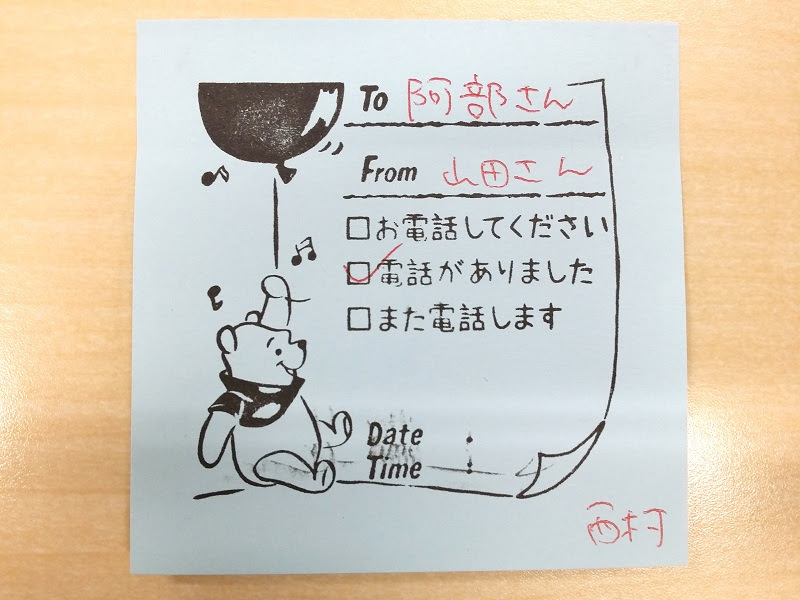 To 阿部さん
From 山田さん
□お電話してください
☑電話がありました
□また電話します
Date .
Time :
西村